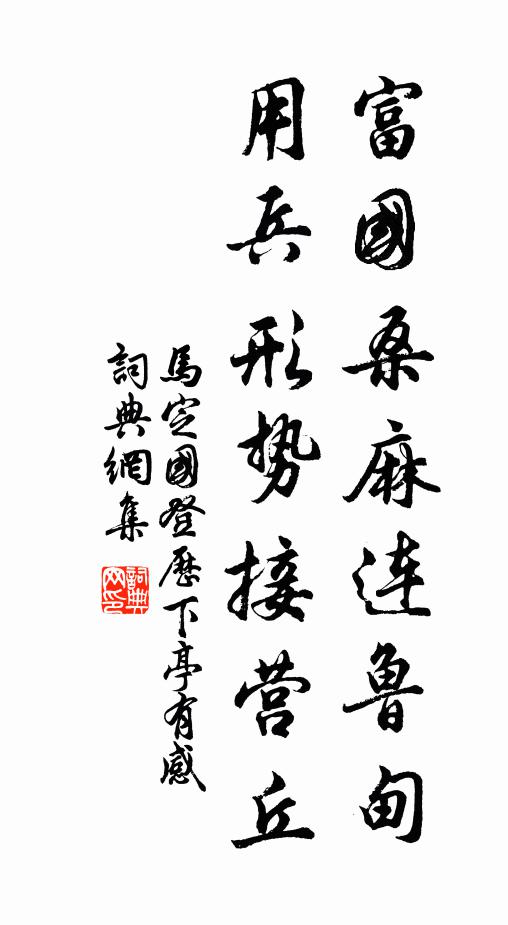 富國桑麻连魯甸
用兵形势接营丘
馬定國登歷下亭有感
詞典網集
詞典網印